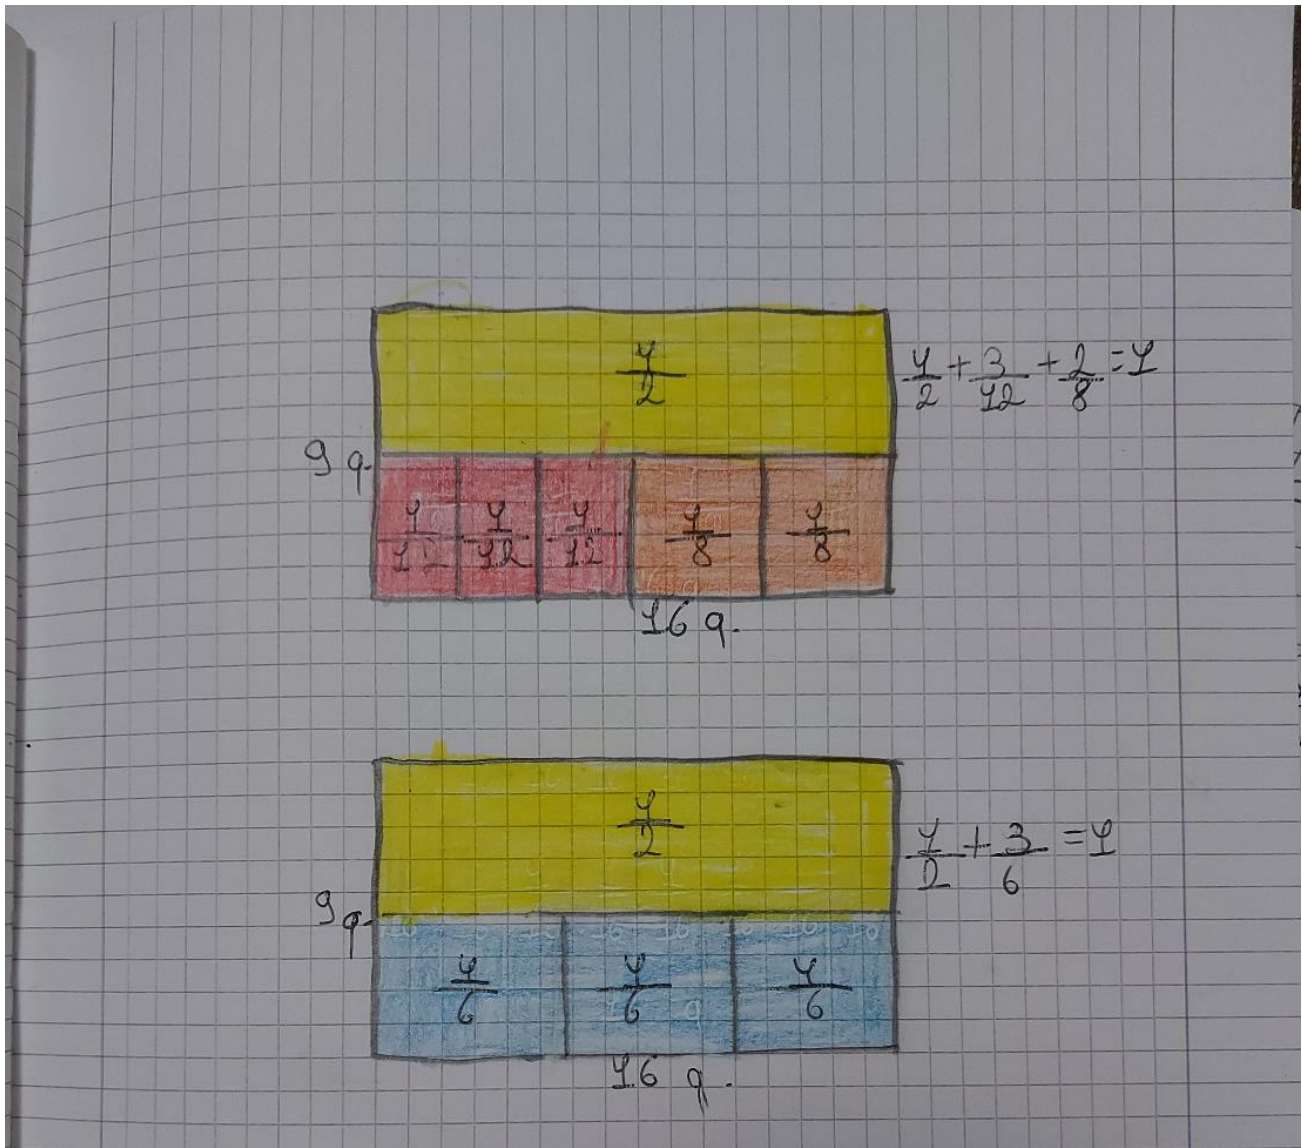 1/2
1/2 + 3/12 + 2/8 = 1
9 q.
1/12 1/12 1/12 1/8 1/8
16 q.
1/2
1/2 + 3/6 = 1
9 q.
1/6 1/6 1/6
16 q.